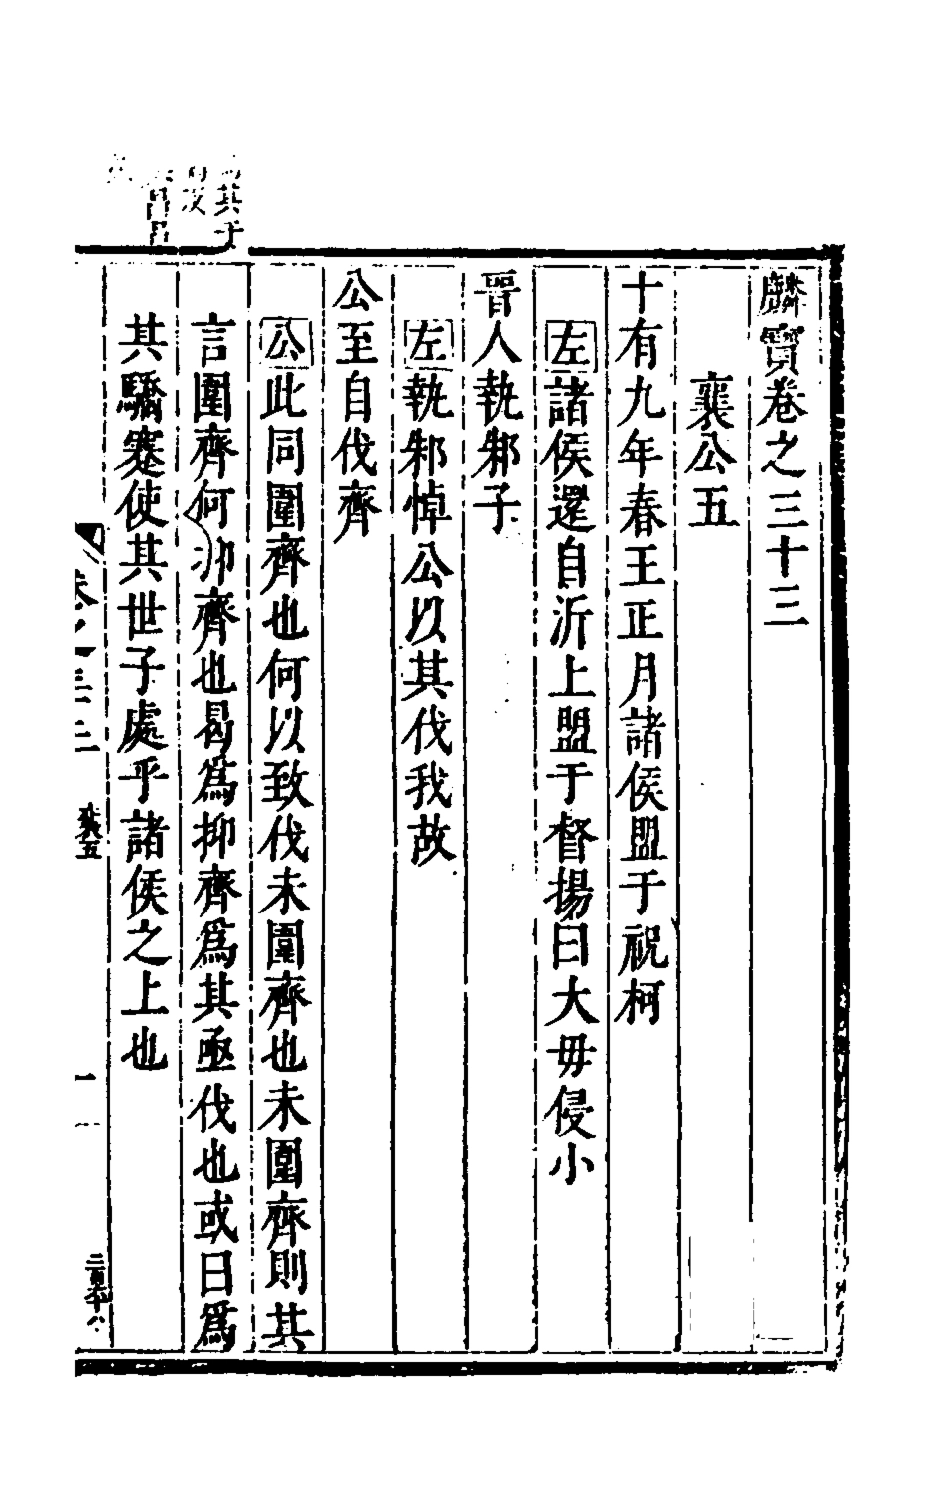 麟寶卷之三十三
襄公五
十有九年春王正月諸侯盟于祝柯
左諸侯還自沂上盟于督揚曰大毋侵小
晋人執邾子
左執邾悼公以其伐我故
公至自伐齊
公此同圍齊也何以致伐未圍齊也未圍齊則其
言圍齊何抑齊也曷爲抑齊爲其亟伐也或曰爲
其驕蹇使其世子處乎諸侯之上也
卷之三十三
襄五
一